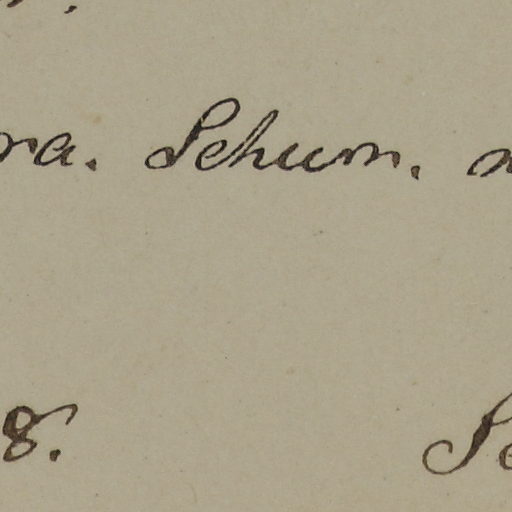 ra. Schum.
8. Se